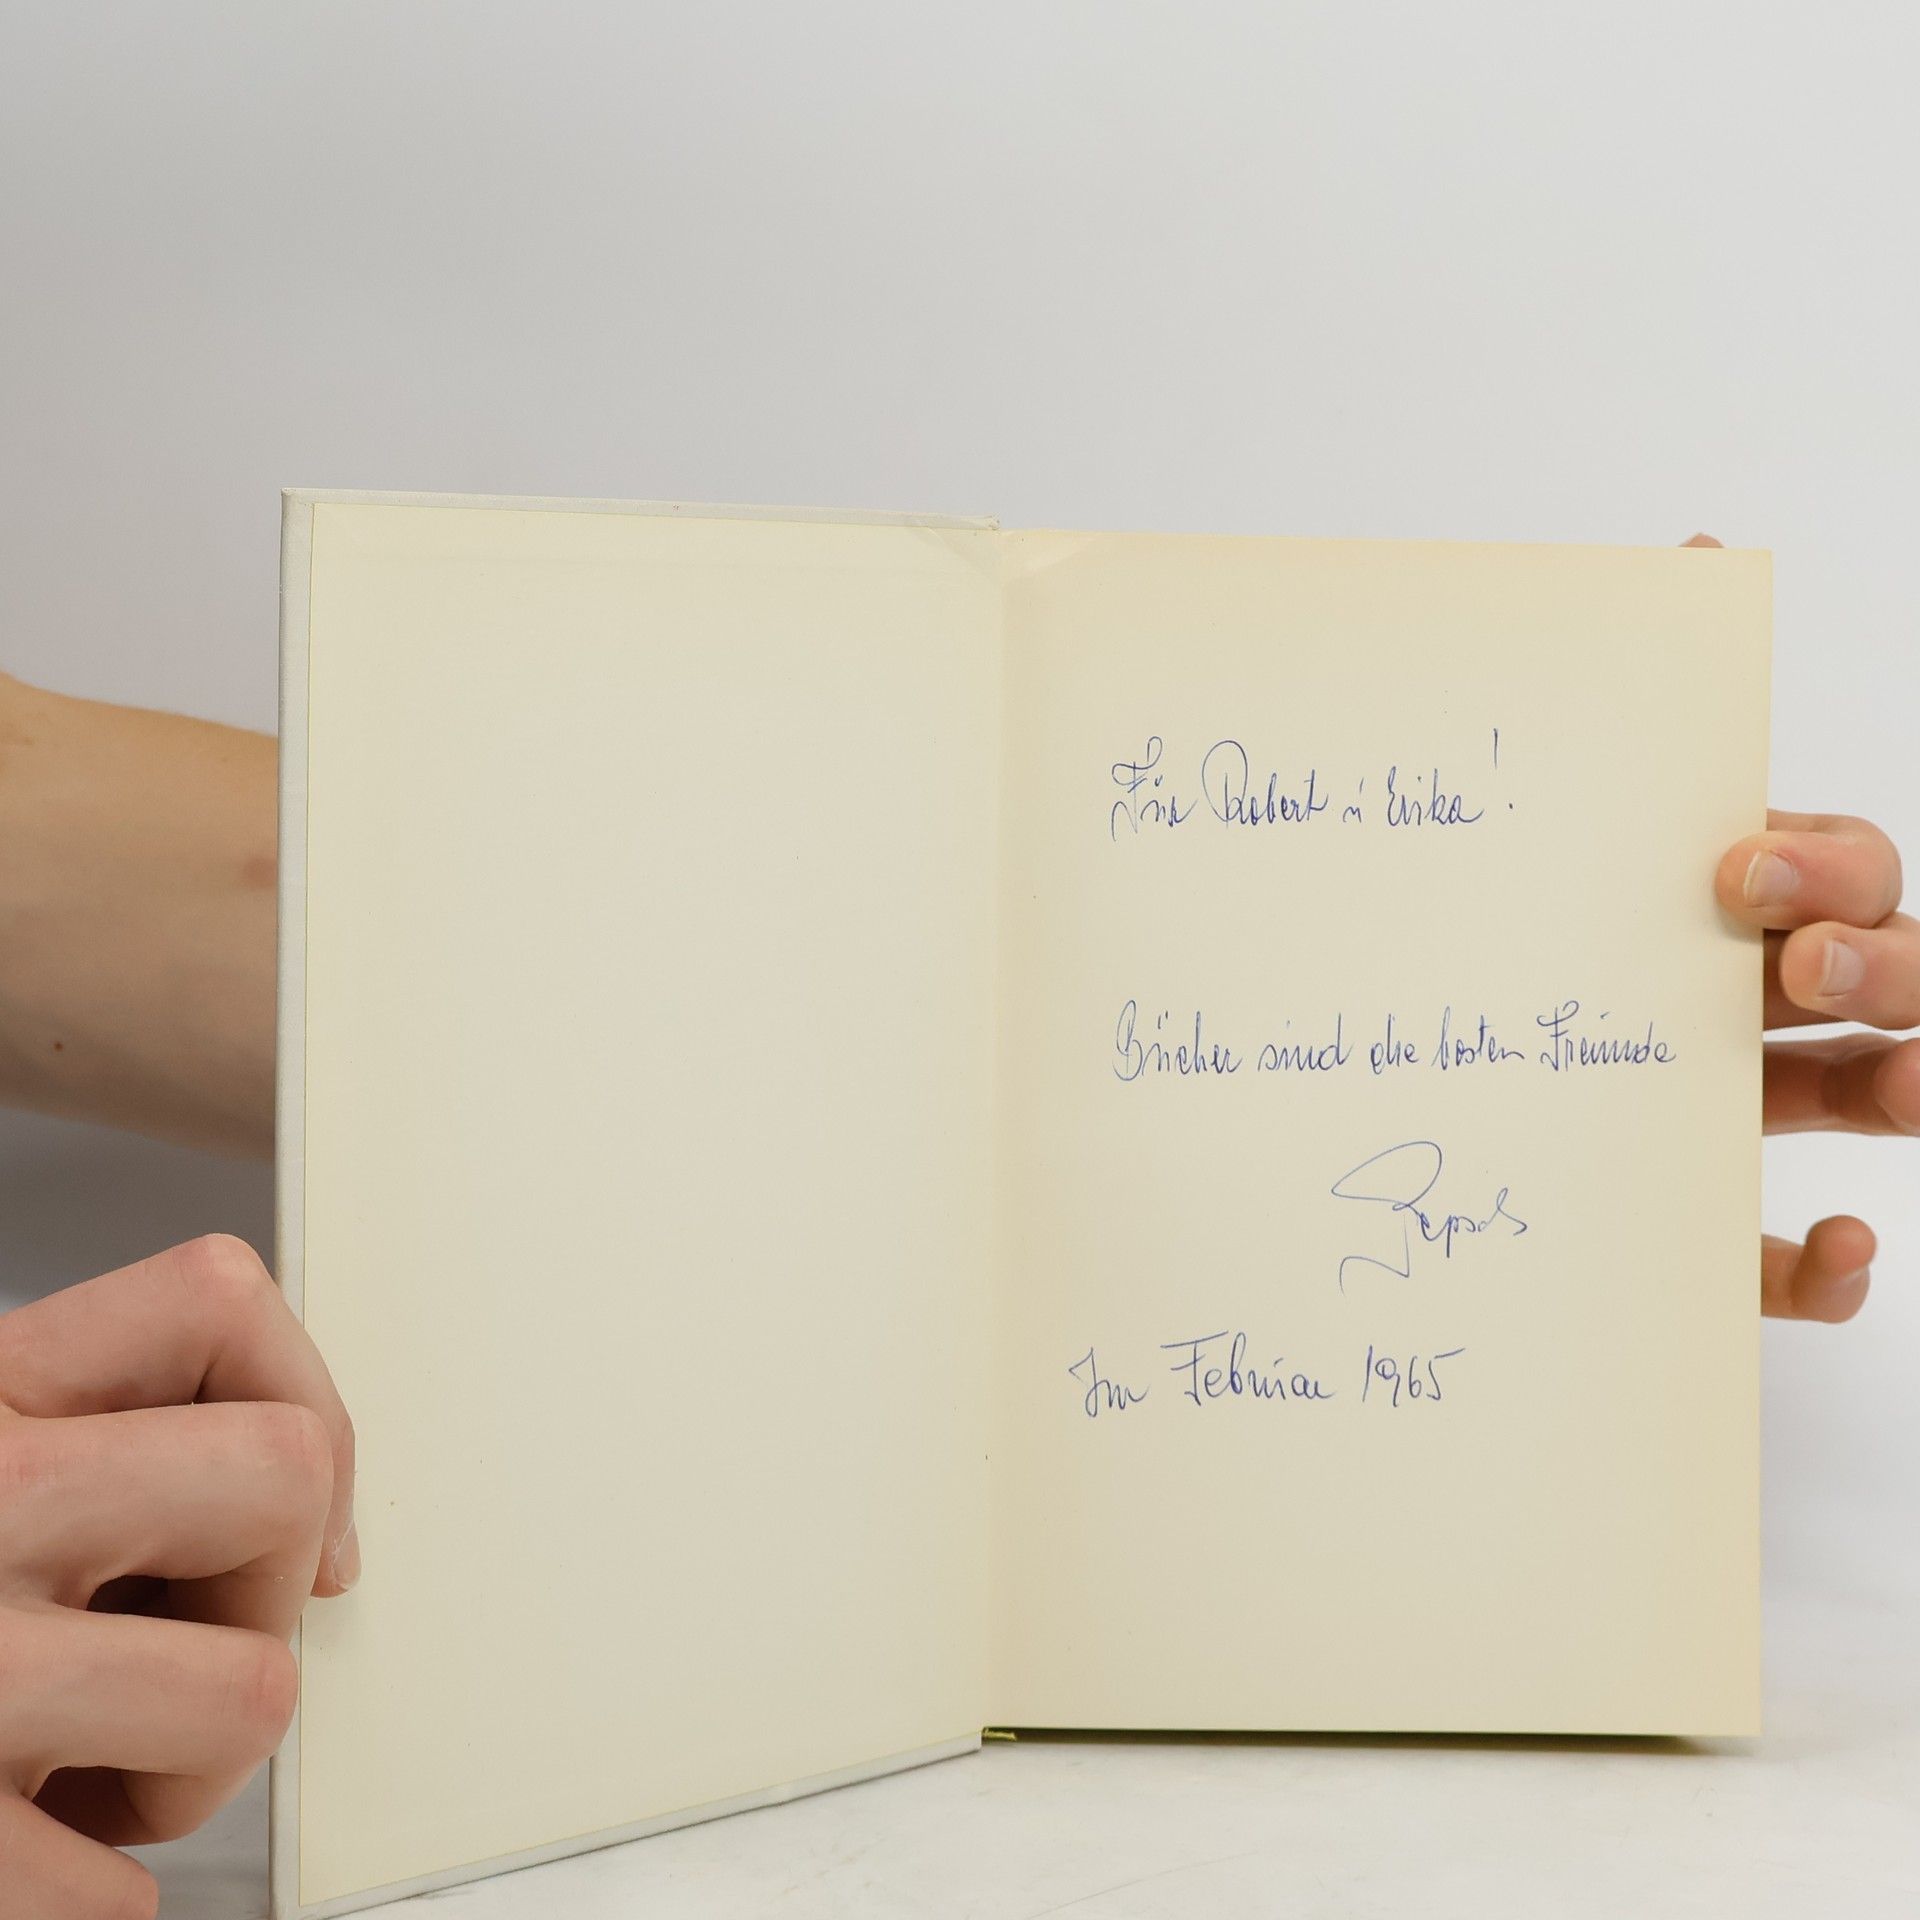 Für Robert u Erika!
Bücher sind die besten Freunde
Im Februar 1965